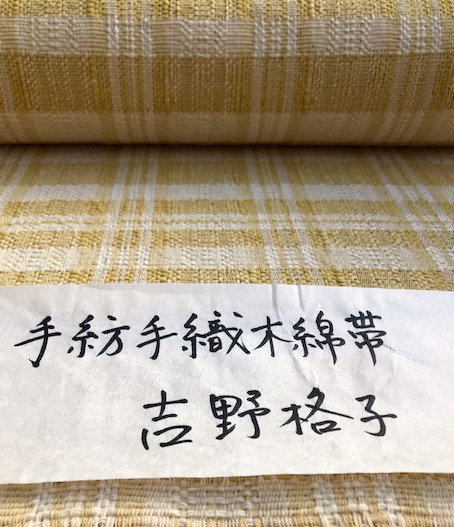 手紡手織木綿帯
吉野格子